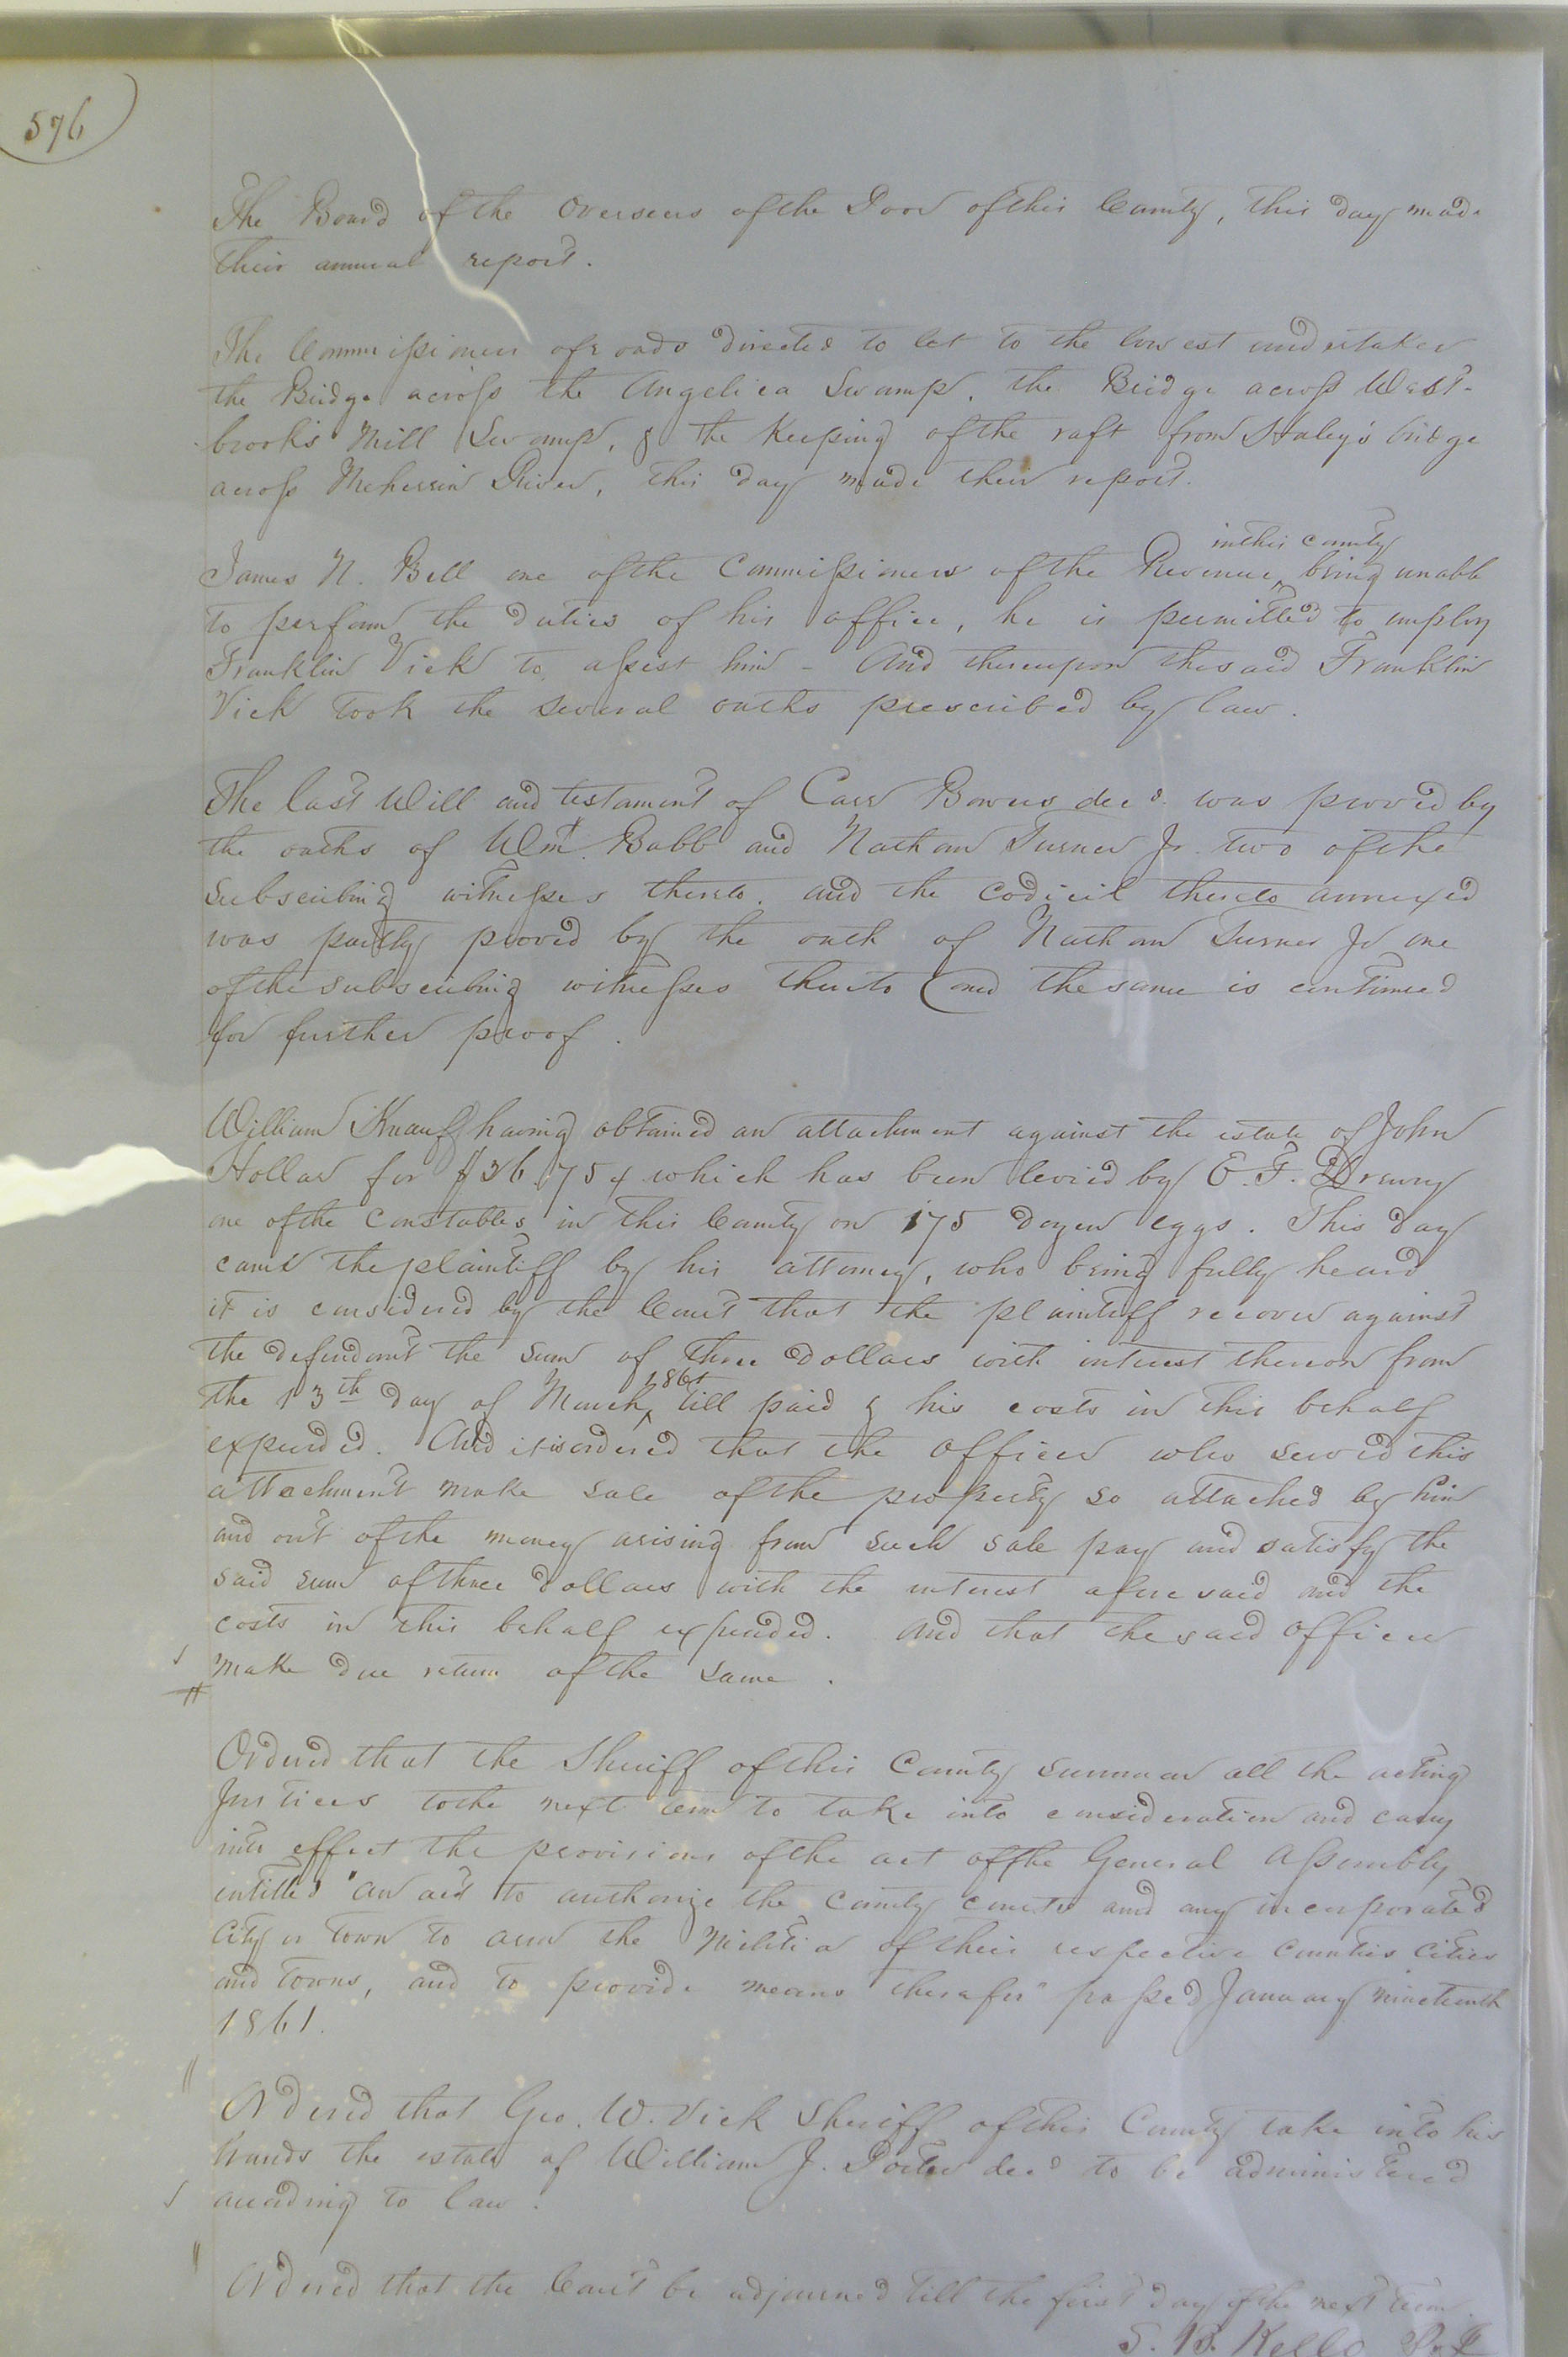 576
The Board of the Overseers of the Poor of this County, this day made
their annual report.
The Commissioners of roads directed to let to the lowest undertaker
the Bridge across the Angelica Swamp, the Bridge across West-
brook's Mill Swamp, & the Keeping of the raft from Haley's bridge
across Meherrin River, this day made their report.
in this county
James N. Bell one of the Commissioners of the Revenue, being unable
to perform the duties of his office, he is permitted to employ
Franklin Vick to assist him - And thereupon the said Franklin
Vick took the several oaths prescribed by law.
The last Will and testament of Carr Bowers decd. was proved by
the oaths of Wm. Babb and Nathan Turner Jr. two of the
subscribing witnesses thereto. and the codicil thereto annexed
was partly proved by the oath of Nathan Turner Jr one
of the subscribing witnesses thereto and the same is continued
for further proof.
William Knauf having obtained an attachment against the estate of John
Hollar for $36.75 which has been levied by E. F. Drewry
one of the constables in this County on 175 dozen eggs. This day
came the plaintiff by his attorney, who being fully heard
it is considered by the Court that the plaintiff recover against
the defendant the sum of three dollars with interest thereon from
1861
the 13th day of March, till paid & his costs in this behalf
expended. And it is ordered that the officer who served this
attachment make sale of the property so attached by him
and out of the money arising from such sale pay and satisfy the
said sum of three dollars with the interest aforesaid and the
costs in this behalf expended. And that the said officer
make due return of the same.
Ordered that the Sheriff of this County summon all the acting
Justices to the next term to take into consideration and carry
into effect the provisions of the act of the General Assembly
entitled "an act to authorize the county courts and any incorporated
city or town to arm the Militia of their respective counties cities
and towns, and to provide means therefor" passed January nineteenth
1861.
Ordered that Geo. W. Vick Sheriff of this County take into his
hands the estate of William J. Porter decd to be administered
according to law.
Ordered that the Court be adjourned till the first day of the next term.
S. B. Kello P.J.